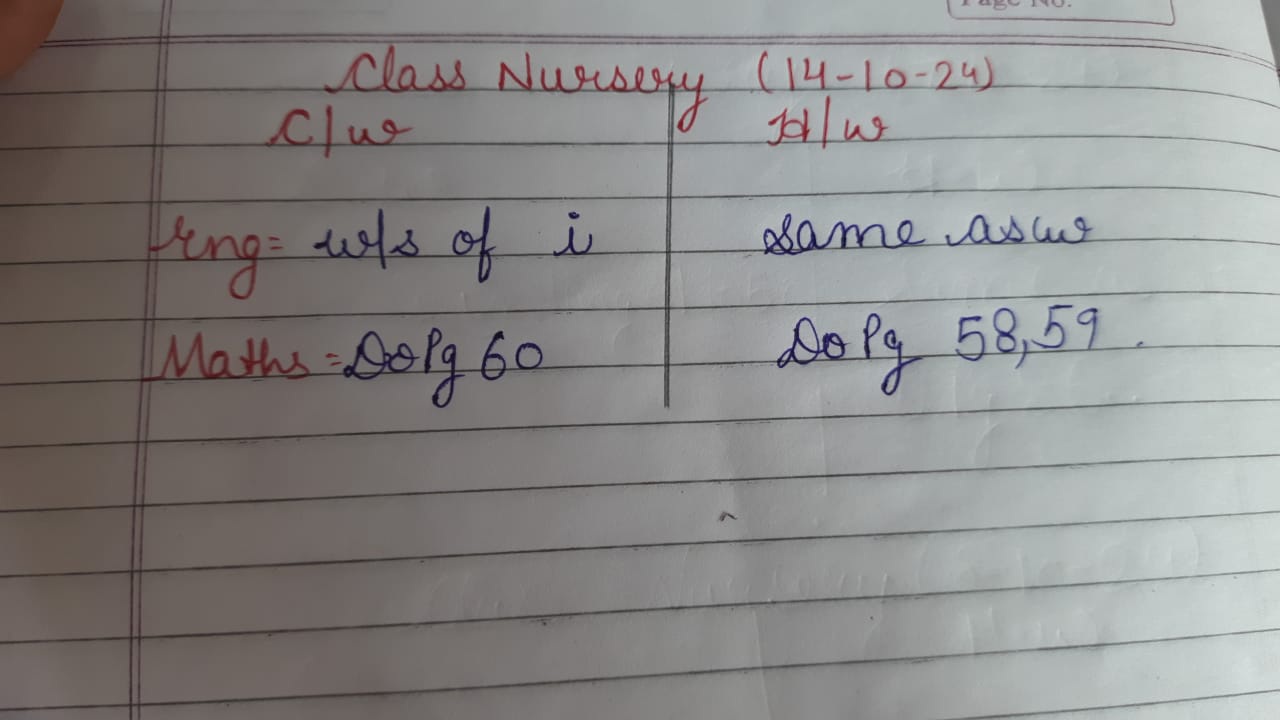 Page No.
Class Nursery (14-10-24)
C/w H/w
Eng = w/s of i same as cw
Maths = Do Pg 60 Do Pg 58,59.